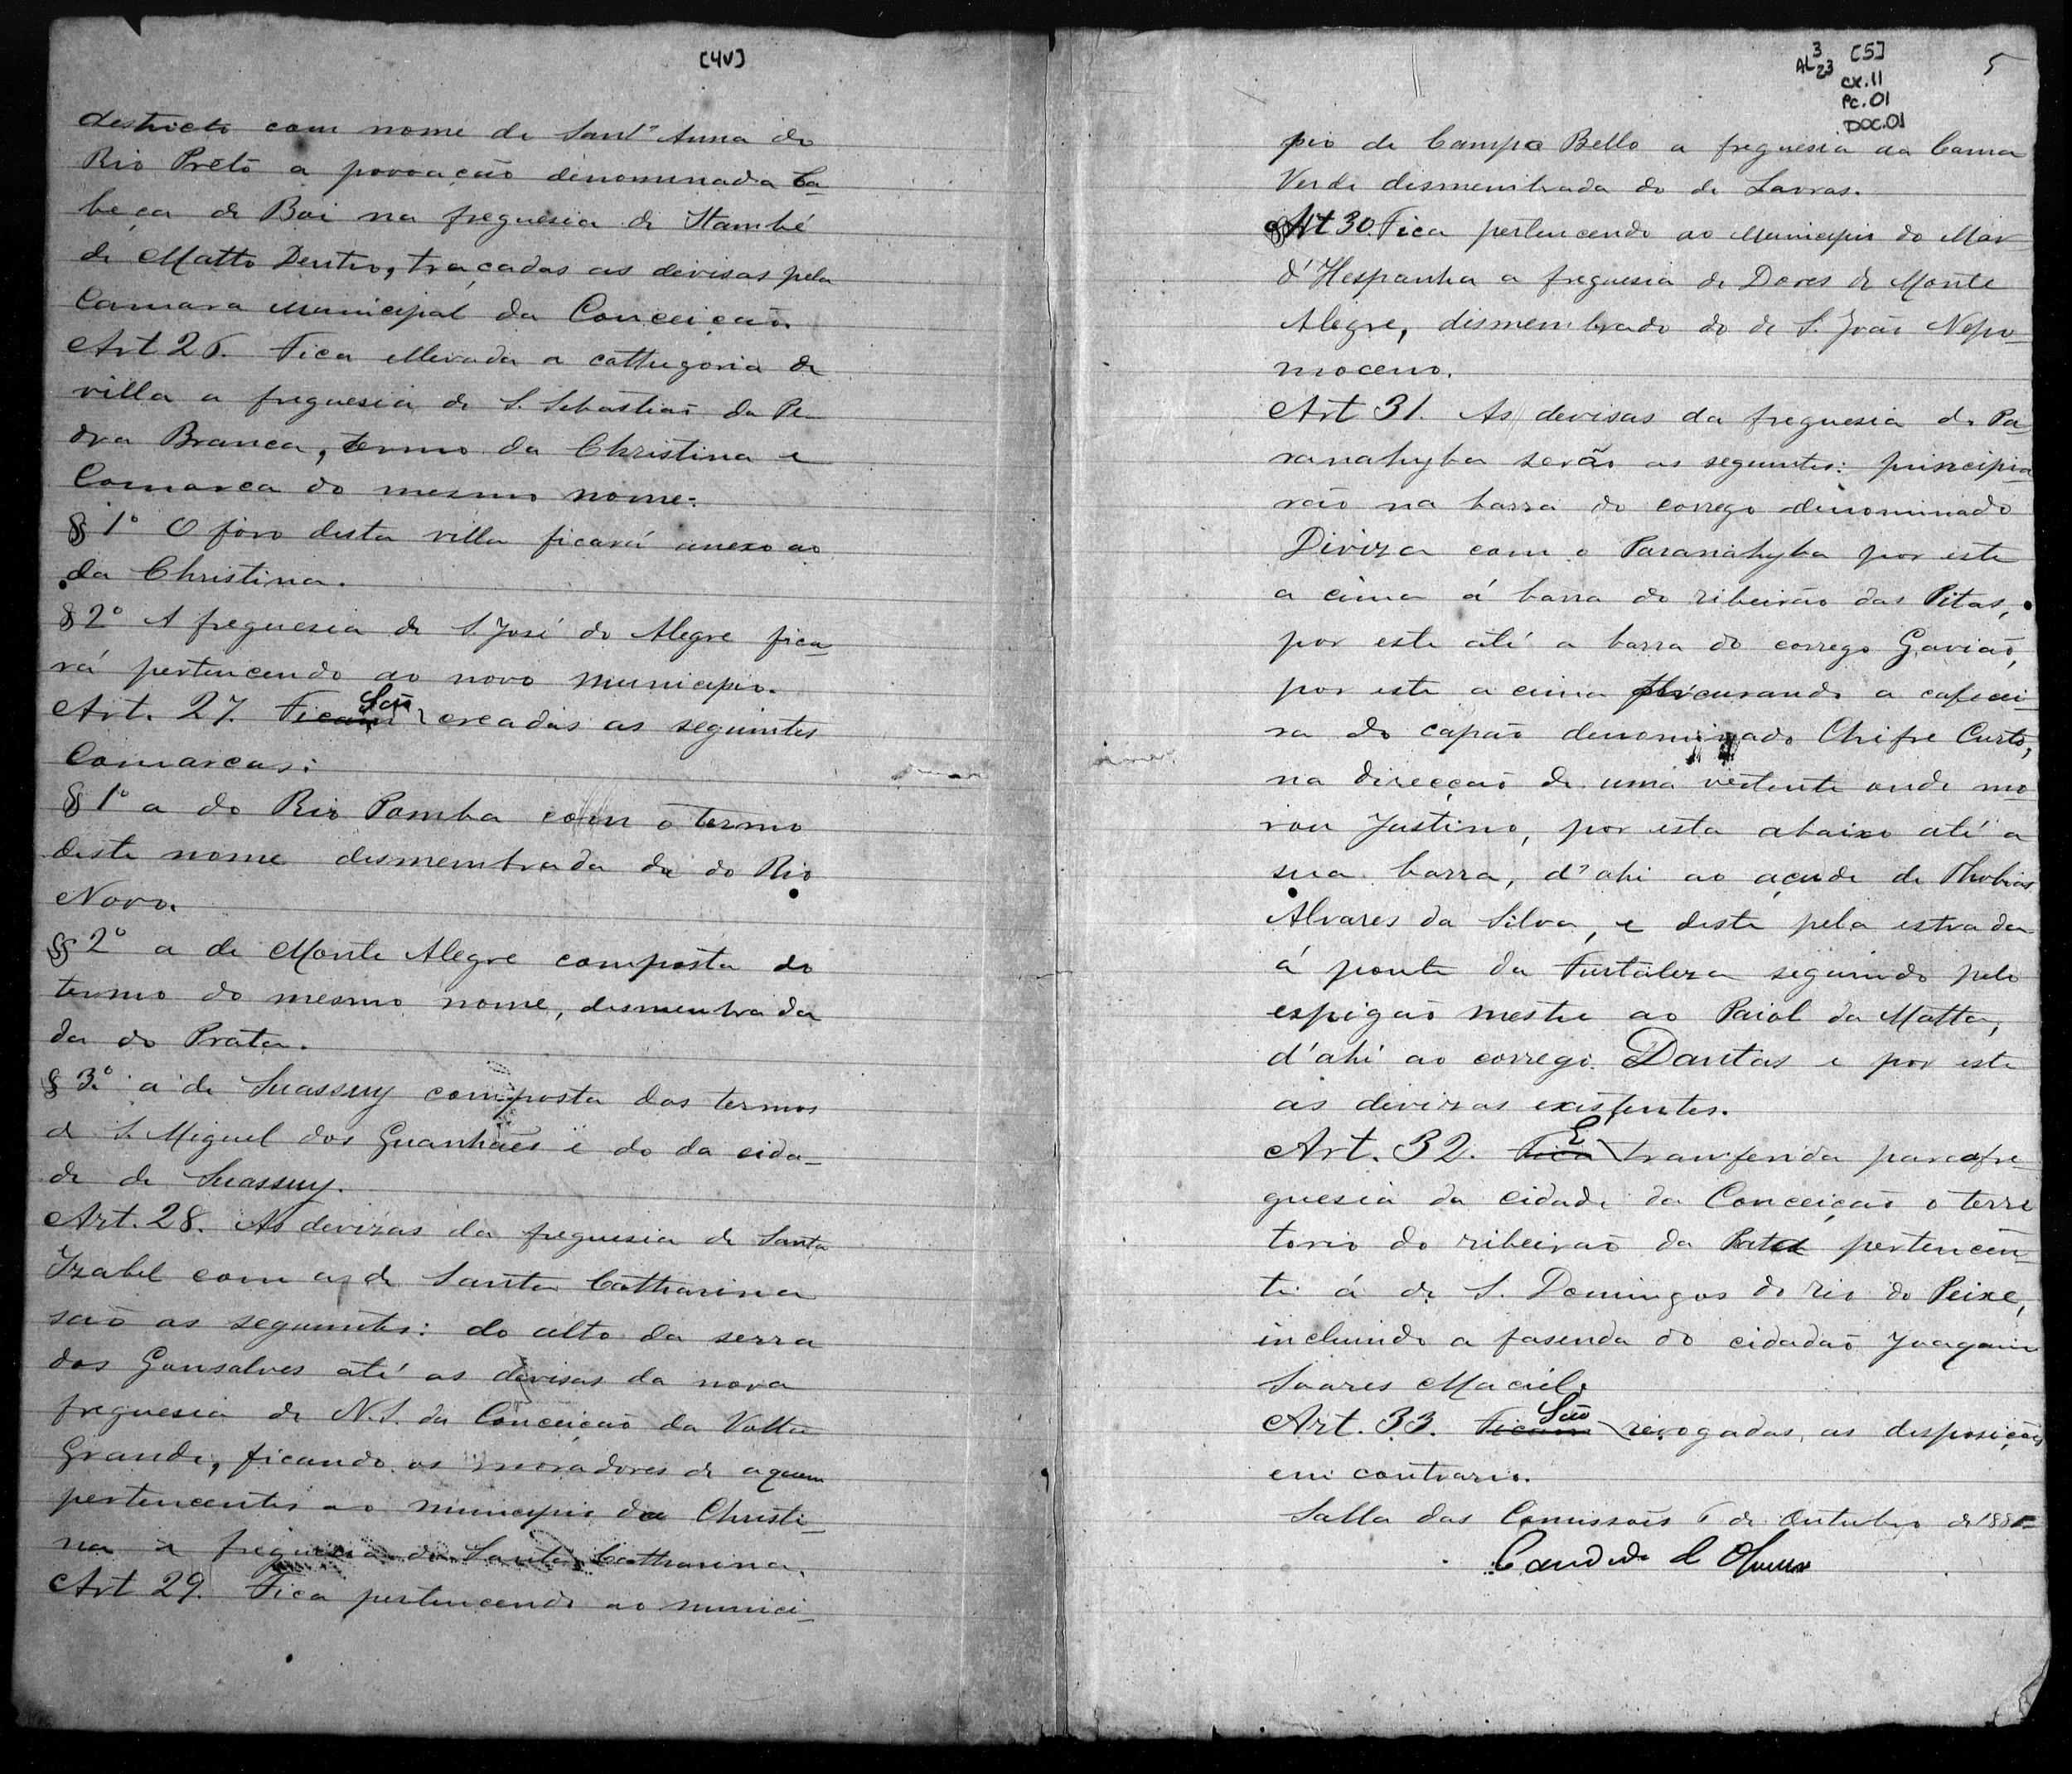 [4V]
destricto com nome de Sant'Anna do
Rio Preto a povoação denominada Ca-
beça de Boi na freguesia de Itambé
de Matto Dentro, traçadas as devisas pela
Camara Municipal da Conceição.
Art 26. Fica ellevada a cathegoria de
villa a freguesia de S. Sebastião da Pe-
dra Branca, termo da Christina e
Comarca do mesmo nome.
§ 1º O foro desta villa ficará anexo ao
da Christina.
§ 2º A freguesia de S. José do Alegre fica-
rá pertencendo ao novo municipio.
Art. 27. Ficam São creadas as seguintes
Comarcas:
§ 1º a do Rio Pomba com o termo
deste nome desmembrada da do Rio
Novo.
§ 2º a de Monte Alegre composta do
termo do mesmo nome, desmembrada
da do Prata.
§ 3º a de Suassuy composta dos termos
de S. Miguel dos Guanhães e do da cida-
de de Suassuy.
Art. 28. As devizas da freguesia de Santa
Izabel com as de Santa Catharina
são as seguintes: do alto da serra
dos Gonsalves até as devisas da nova
freguesia de N. S. da Conceição da Volta
Grande, ficando os moradores de aquem
pertencentes ao municipio da Christi-
na e freguesia de Santa Catharina.
Art 29. Fica pertencendo ao munici-
AL 3 23 [5] 5
cx.11
Pc.01
DOC.01
pio de Campo Bello a freguesia da Cana
Verde desmembrada do de Lavras.
Art 30. Fica pertencendo ao Municipio do Mar
d'Hespanha a freguesia de Dores de Monte
Alegre, dismembrado do de S. João Nepo-
moceno.
Art 31. As devisas da freguesia do Pa-
ranahyba serão as seguintes: principia-
rão na barra do corrego denominado
Diviza com o Paranahyba por este
a cima á barra do ribeirão das Pitas,
por este até a barra do corrego Gavião,
por este a cima procurando a cafecei-
ra do capão denominado Chifre Curto,
na direcção de uma vertente onde mo-
rou Justino, por esta abaixo até a
sua barra, d'ahi ao açude de Thobias
Alvares da Silva, e deste pela estrada
á ponte da Furtaleza seguindo pelo
espigão mestre ao Paiol da Matta,
d'ahi ao corrego Dantas e por este
as devizas existentes.
Art. 32. Fica E transferida para a fre-
guesia da cidade da Conceição o terri-
torio do ribeirão da Prata pertencen-
te á de S. Domingos do rio do Peixe,
incluindo a fasenda do cidadão Joaquim
Soares Maciel.
Art. 33. Ficam São revogadas as disposições
em contrario.
Salla das Comissões 6 de Outubro de 188
Candido d Oliveira